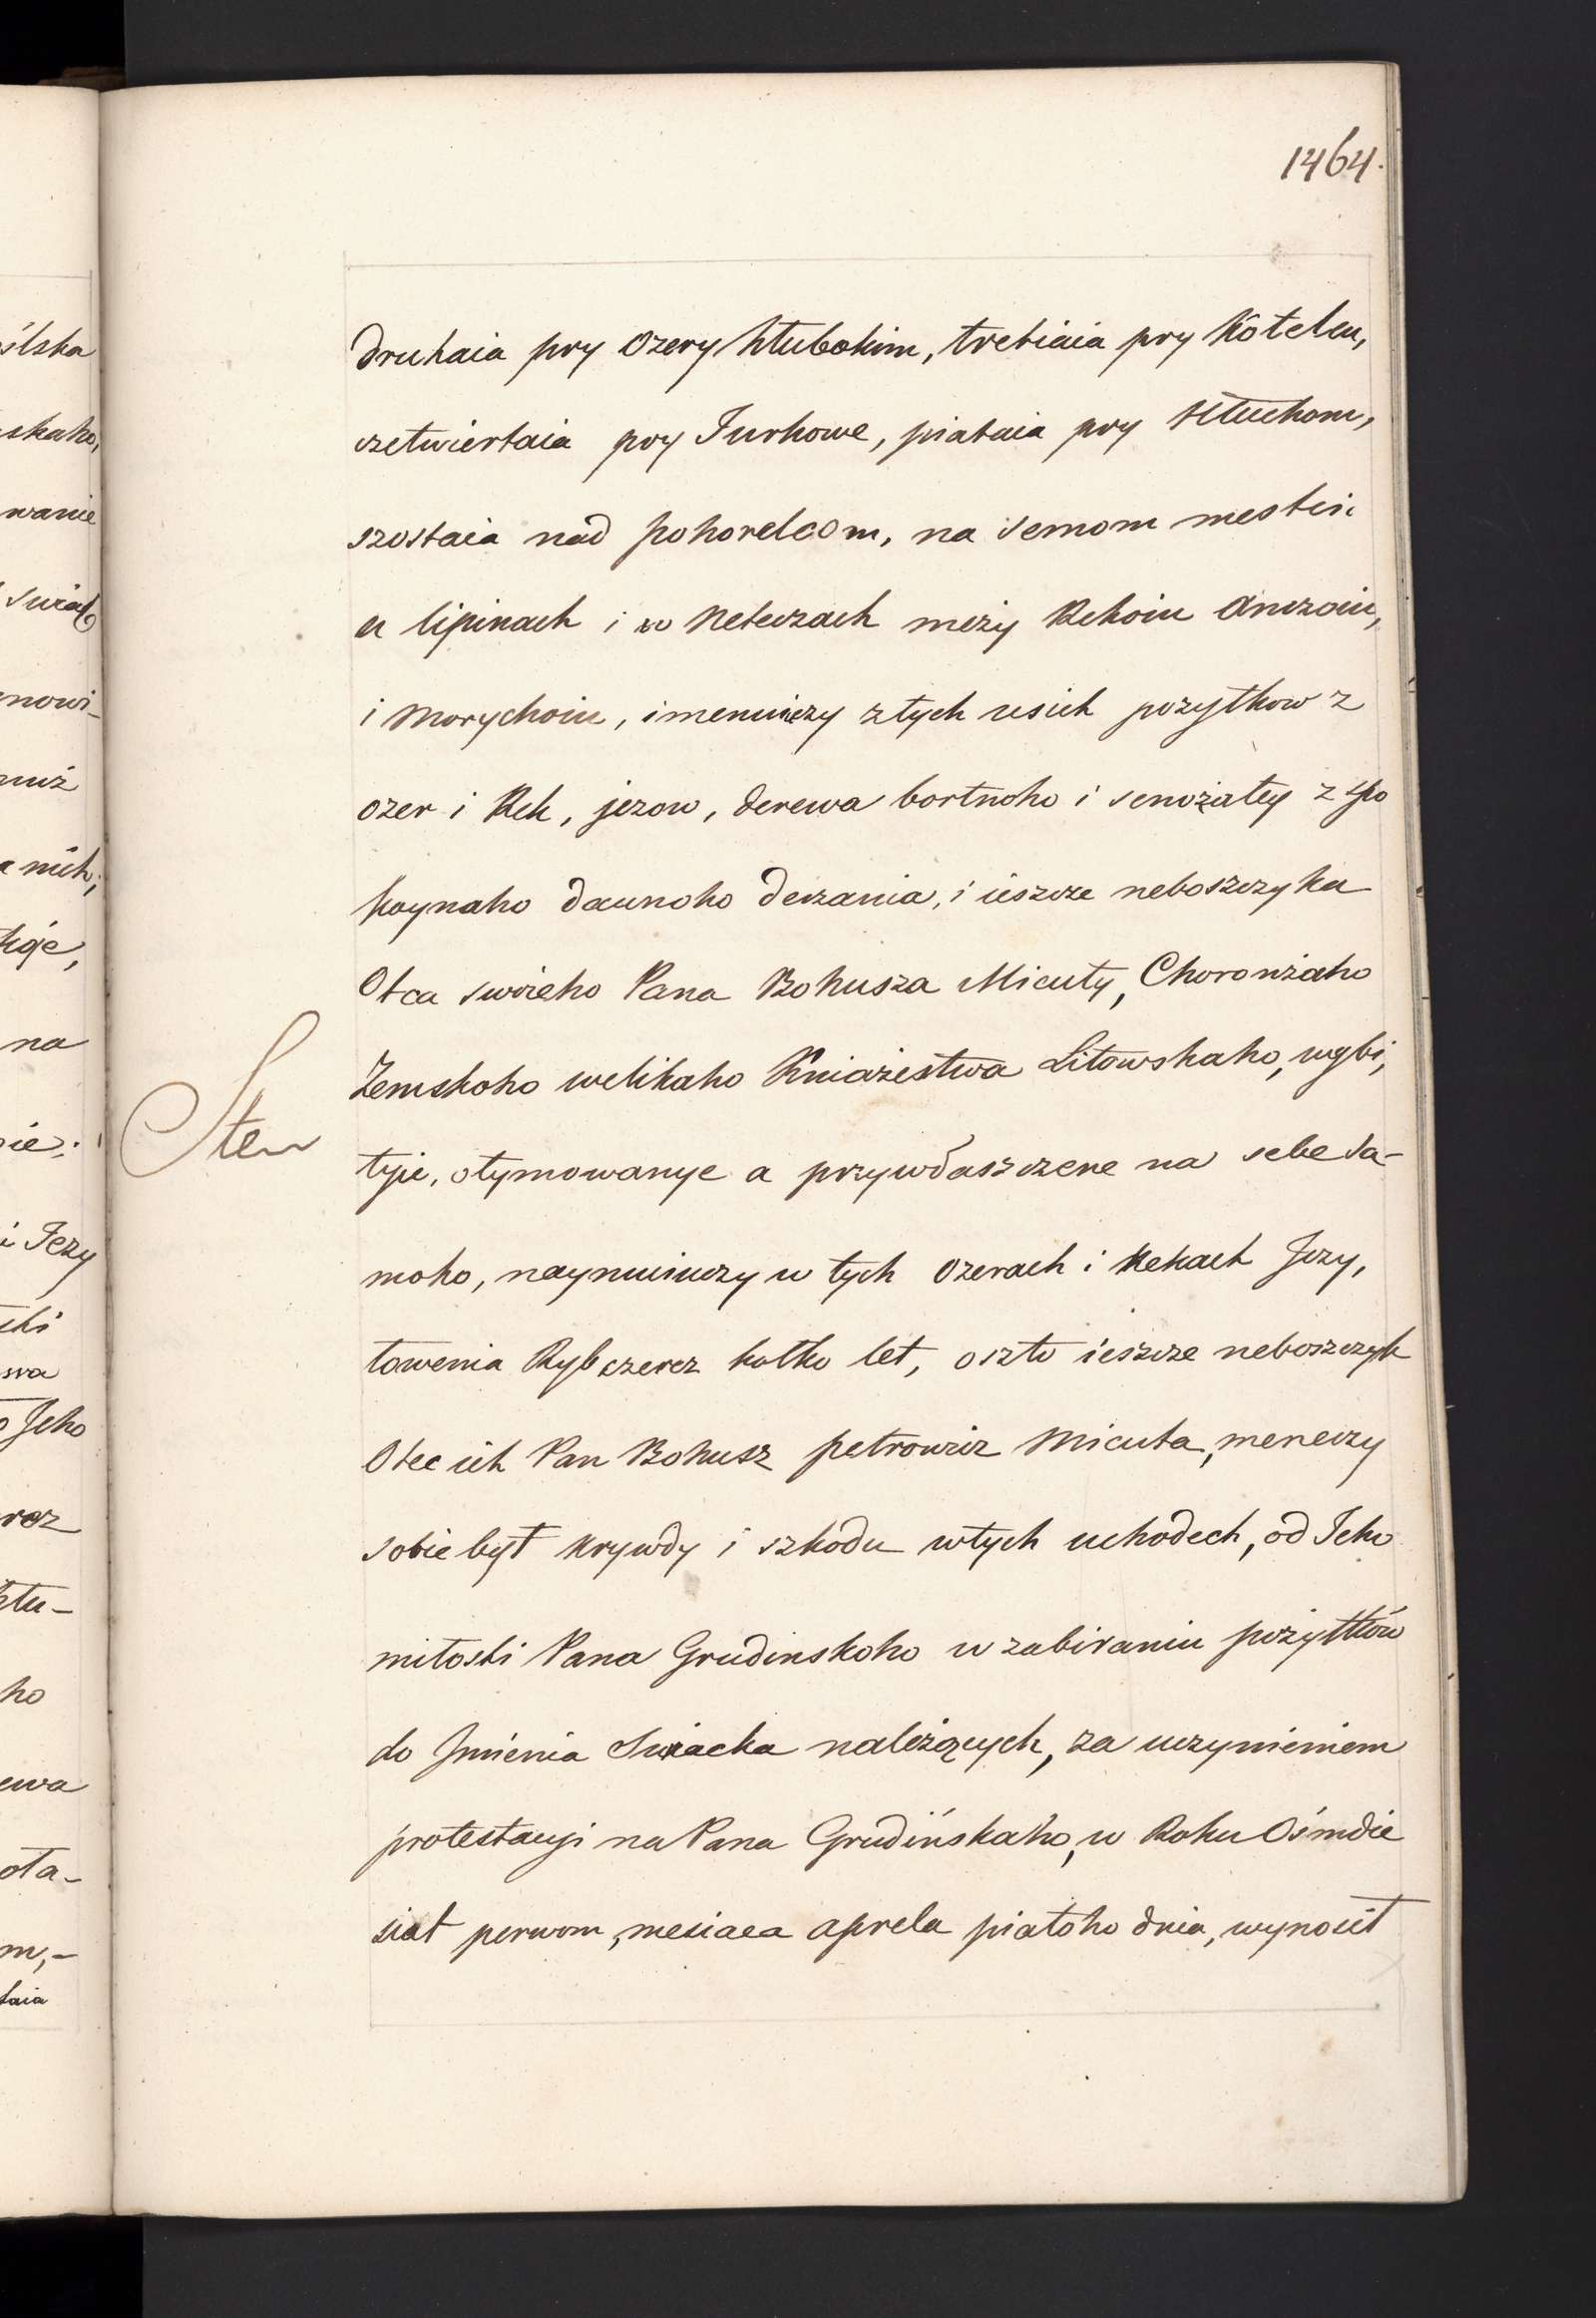 1464.
druhaia pry Ozery htubokim, tretiaia pry Kotelu,
czetwiertaia pry Turkowe, piataia pry Htuchom,
szostaia nad pohorelcom, na semom mestci
u lipinach i w Neteczach meży Rekoiu Anczoiu,
i Morychoiu, i menuiczy z tych usich pożytkow z
ozer i Rek, jezow, derewa bortnoho i senożatey z spo
koynaho daunoho derzania, i ieszcze neboszczyka
Otca swoieho Pana Bohusza Micuty, Choronżaho
Zemskoho welikaho Kniażestwa Litowskaho, wybi,
Sten
tyie, otymowanye a prywłaszczene na sebe sa-
moho, naymuiuczy w tych Ozerach i Rekach Jezy,
towenia Ryb czerez kolko let, o szto ieszcze neboszczyk
Otec ich Pan Bohusz petrowicz Micuta, meneczy
sobie był krywdy i szkodu w tych uchodech, od Jeho
miłosti Pana Grudinskoho w zabiraniu pożytków
do Jmienia Swiacka należących, za uczynieniem
protestacyi na Pana Grudińskaho, w Roku Ośmdie
siat perwom, mesiaca aprela piatoho dnia, wynosit
ślska
skaho,
wanie
swiad
nowi-
muż
nich,
koje,
na
i Jezy
swa
Jeho
rez
htu-
ho
ewa
ota-
m,-
taia